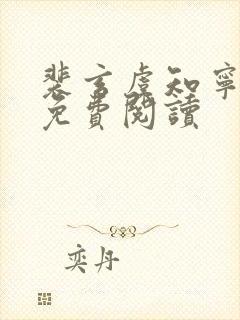 裴言虞知寧
免費閱讀
奕丹